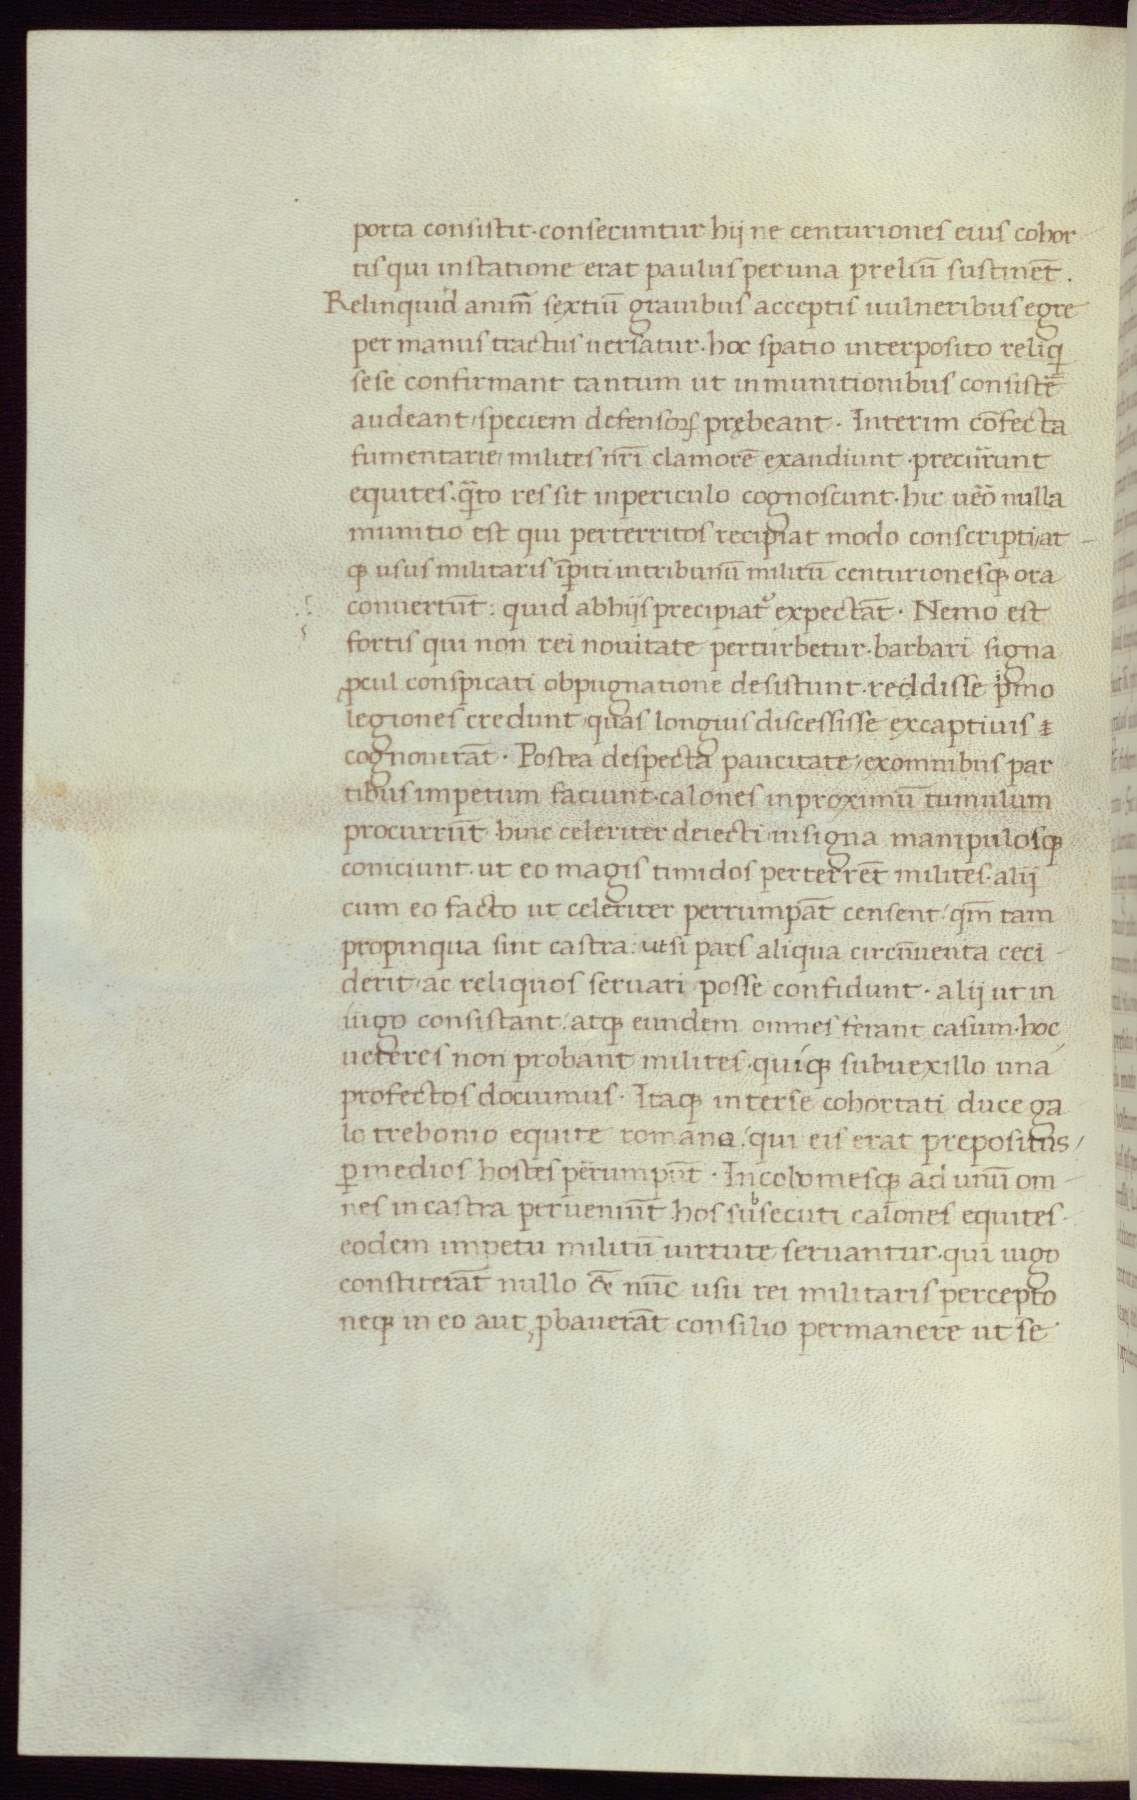 porta consistit · consecuntur hij ne centuriones eius cohor-
tis qui instatione erat paulus per una preliū sustinet̄ .
Relinquid anim̄ sextiū grauibus acceptis uulneribus egre
per manus tractus uersatur · hoc spatio interposito reliq̨
sese confirmant tantum ut inmunitionibus consistē
audeant / speciem defensoꝝ prębeant · Interim cōfecta
fumentarie / milites nr̄i clamorē exaudiunt · precurrunt
equites · q̄to res sit inpericulo cognoscunt · hic uēo nulla
munitio est qui perterritos recipiat modo conscripti / at-
qꝫ usus militaris īpiti intribunū militū centurionesqꝫ ora
conuertūt : quid abhijs precipiat᷑ expectāt · Nemo est
fortis qui non rei nouitate perturbetur · barbari signa
ꝓcul conspicati obpugnatione desistunt · reddisse pⁱmo
legiones credunt / quas longius discessisse excaptiuis ꝫ
cognouerāt · Postea despecta paucitate / exomnibus par
tibus impetum faciunt · calones inproximū tumulum
procurrūt hinc celeriter deiecti insigna manipulosqꝫ
coniciunt · ut eo magis timidos perterrēt milites · alij
cum eo facto ut celeriter perrumpāt censent / qm̄ tam
propinqua sint castra : ut si pars aliqua circūuenta ceci-
derit / ac reliquos seruari posse confidunt · alij ut in
iugo consistant / atqꝫ eundem omnes ferant casum · hoc
ueteres non probant milites · quiqꝫ subuexillo una
profectos docuimus · Itaqꝫ interse cohortati duce ga
lo trebonio equite romano / qui eis erat prepositus /
ꝑ medios hostes perrumpūt · Incolomesqꝫ ad unū om-
nes incastra perueniūt hos subsecuti calones equites
eodem impetu militū uirtute seruantur · qui iugo
constiterāt nullo &̄ nūc usu rei militaris percepto
neqꝫ in eo aut ꝓbauerāt consilio permanere ut se